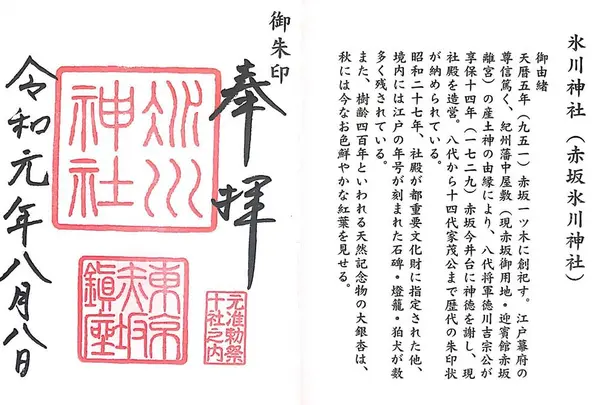 氷川神社（赤坂氷川神社）
御由緒
天暦五年（九五一）赤坂一ツ木に創祀す。江戸幕府の
尊信篤く、紀州藩中屋敷（現赤坂御用地・迎賓館赤坂
離宮）の産土神の由縁により、八代将軍徳川吉宗公が
享保十四年（一七二九）赤坂今井台に神徳を謝し、現
社殿を造営。八代から十四代家茂公まで歴代の朱印状
が納められている。
昭和二十七年、社殿が都重要文化財に指定された他、
境内には江戸の年号が刻まれた石碑・燈籠・狛犬が数
多く残されている。
また、樹齢四百年といわれる天然記念物の大銀杏は、
秋には今なお色鮮やかな紅葉を見せる。
御朱印
奉拝
元准勅祭
十社之内
氷川
神社
東京
赤坂
鎭座
令和元年八月八日